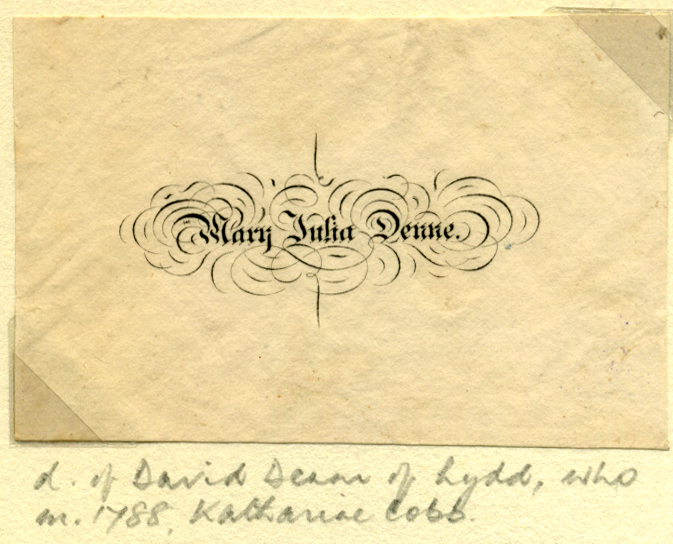 Mary Julia Denne.
d. of David Denne of Lydd, who
m. 1788, Katharine Cobb.